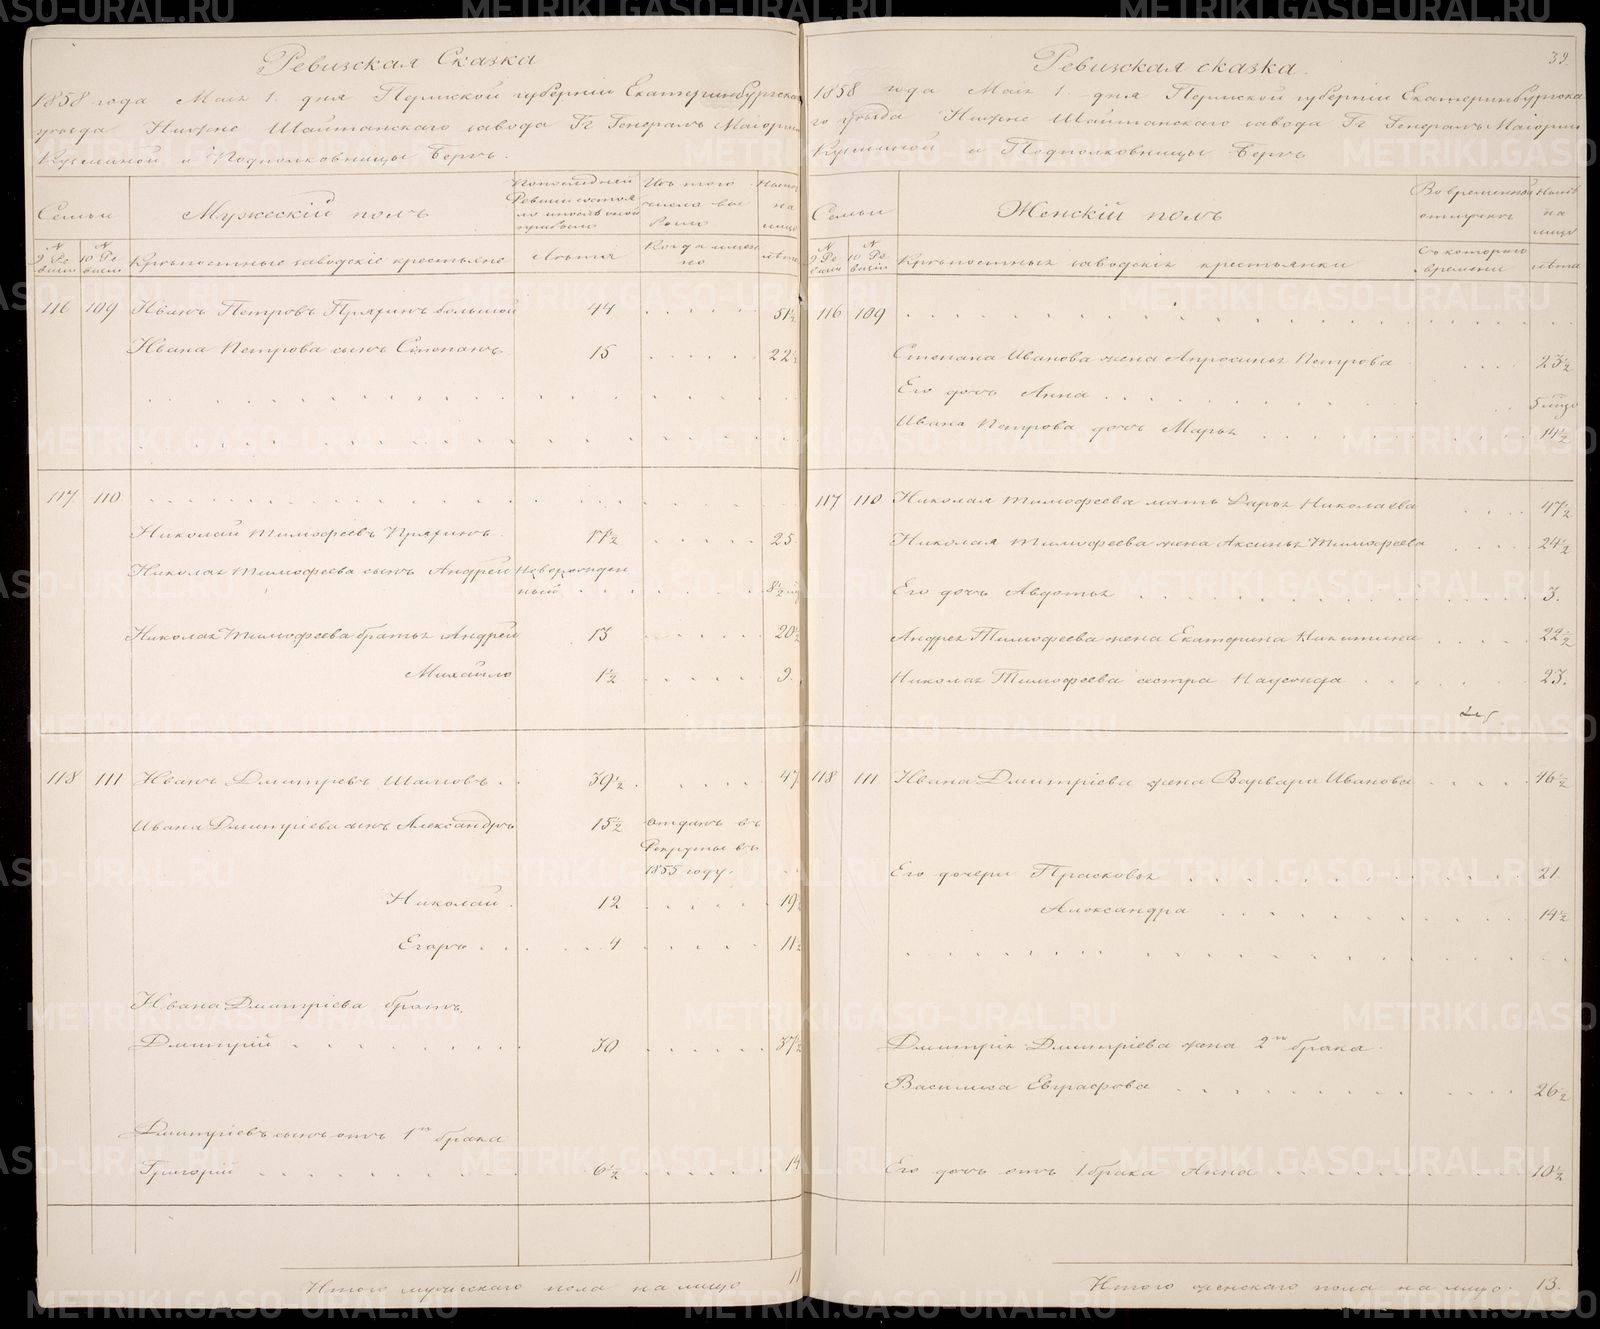 Ревизская Сказка
1858 года Мая 1. дня Пермской губернiи Екатеринбургска
уезда Нижне Шайтанскаго завода Гг Генералъ Маiорши
Кузминой и Подполковницы Бергъ.
Семьи
Мужескiй полъ
По последней
Ревизiи состоя
ло и после оной
прибыло
Изъ того
числа вы
было
Ныне
на
лицо
N
9 Ре
визiи
N
10 Ре
визiи
Крѣпостные заводскiе крестьяне
Лѣта
Когда имен
но
лѣта
116 109 Иванъ Петровъ Пряхинъ большой 44 51½
Ивана Петрова сынъ Степанъ 15 22½
117 110
Николай Тимофеевъ Пряхинъ 17½ 25
Николая Тимофеева сынъ Андрей Новорожден
ный
Николая Тимофеева братья Андрей 13 20½
Михайло 1½ 9.
118 111 Иванъ Дмитревъ Шаловъ 39½ 47
Ивана Дмитрiева сынъ Александръ 15½ отданъ въ
Рекруты въ
1855 году.
Николай 12 19½
Егоръ 4 11½
Ивана Дмитрiева братъ
Дмитрiй 30 37½
Дмитрiевъ сынъ отъ 1го брака
Григорiй 6½ 14
Итого мужескаго пола на лицо 11
39.
Ревизская сказка.
1858 года Мая 1. дня Пермской губернiи Екатеринбургска
го уезда Нижне Шайтанскаго завода Гг Генералъ Маiорши
Кузминой и Подполковницы Бергъ
Семьи
Женскiй полъ
Во временной
отлучке
Ныне
на
лицо
N
9 Ре
визiи
N
10 Ре
визiи
Крѣпостныя заводскiя крестьянки
Съ котораго
времени
лѣта
116 109
Степана Иванова жена Апросинья Петрова 23½
Его дочь Анна
Ивана Петрова дочь Марья 14½
117 110 Николая Тимофеева мать Дарья Николаева 47½
Николая Тимофеева жена Аксинья Тимофеева 24½
Его дочь Авдотья 3.
Андрея Тимофеева жена Екатерина Никитина 22½
Николая Тимофеева сестра Надежда 23.
118 111 Ивана Дмитрiева жена Варвара Иванова 46½
Его дочери Прасковья 21
Александра 14½
Дмитрiя Дмитрiева жена 2го брака
Василиса Евграфова 26½
Его дочь отъ 1 брака Анна 10½
Итого женскаго пола на лицо 13.
METRIKI.GASO-URAL.RU